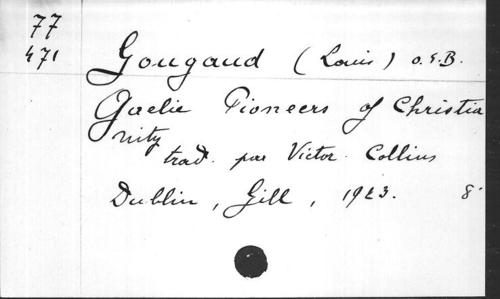 77
471
Gougaud (Louis) O.S.B.
Gaelic Pioneers of Christia
nity
trad. par Victor Collins
Dublin, Gill, 1923. 8°